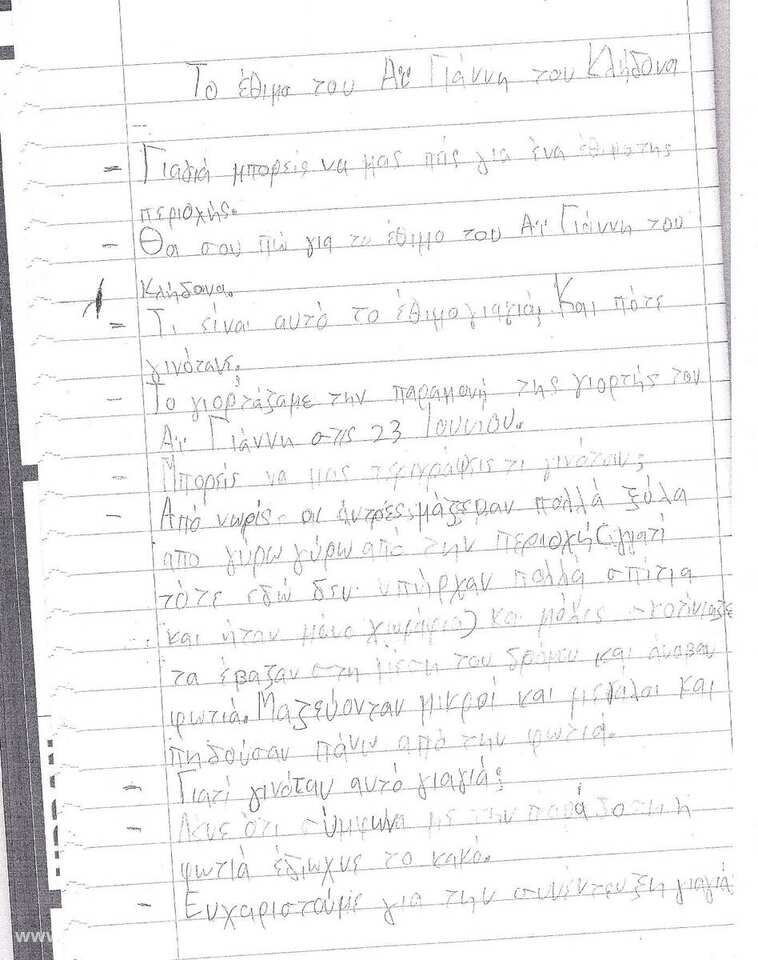 Το έθιμο του Αϊ Γιάννη του Κλήδονα
- Γιαγιά μπορείς να μας πης για ένα έθιμο της
περιοχής.
- Θα σου πώ για το έθιμο του Αϊ Γιάννη του
Κλήδονα.
- Τι είναι αυτό το έθιμο γιαγιά; Και πότε
γινότανε;
- Το γιορτάζαμε την παραμονή της γιορτής του
Αϊ Γιάννη στις 23 Ιουνιου.
- Μπορείς να μας περιγράψεις τι γινόταν;
- Από νωρίς οι άντρες μάζεψαν πολλά ξύλα
απο γύρω γύρω από την περιοχή (γιατί
τότε εδώ δεν υπήρχαν πολλά σπίτια
και ήταν μόνο χωράφια) και μόλις σκοτίνιαζε
τα έβαζαν στη μέση του δρόμου και άναβαν
φωτιά. Μαζεύονταν μικροί και μεγαλοι και
πηδούσαν πάνω από την φωτια.
- Γιατί γινόταν αυτό γιαγιά;
- Λένε ότι σύμφωνα με την παράδοση η
φωτιά έδιωχνε το κακό.
- Ευχαριστούμε για την συνέντευξη γιαγιά
www